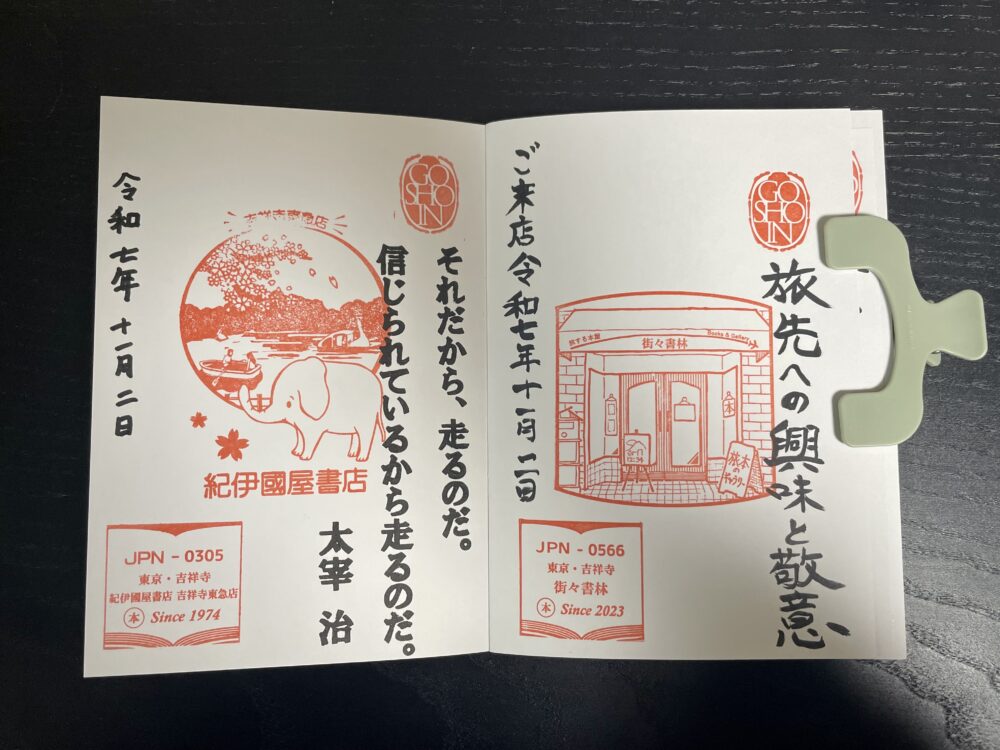 GO
SHO
IN
それだから、走るのだ。
信じられているから走るのだ。
太宰 治
吉祥寺東急店
紀伊國屋書店
令和七年 十一月 二日
JPN - 0305
東京・吉祥寺
紀伊國屋書店 吉祥寺東急店
本 Since 1974
GO
SHO
IN
旅先への興味と敬意
旅する本屋
街々書林
Books & Gallery
本
旅の本
ギャラリー
ご来店 令和七年十一月二日
JPN - 0566
東京・吉祥寺
街々書林
本 Since 2023